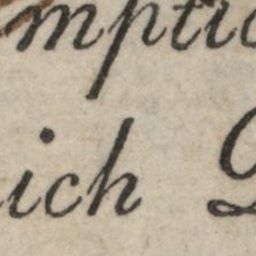 mptio
ich